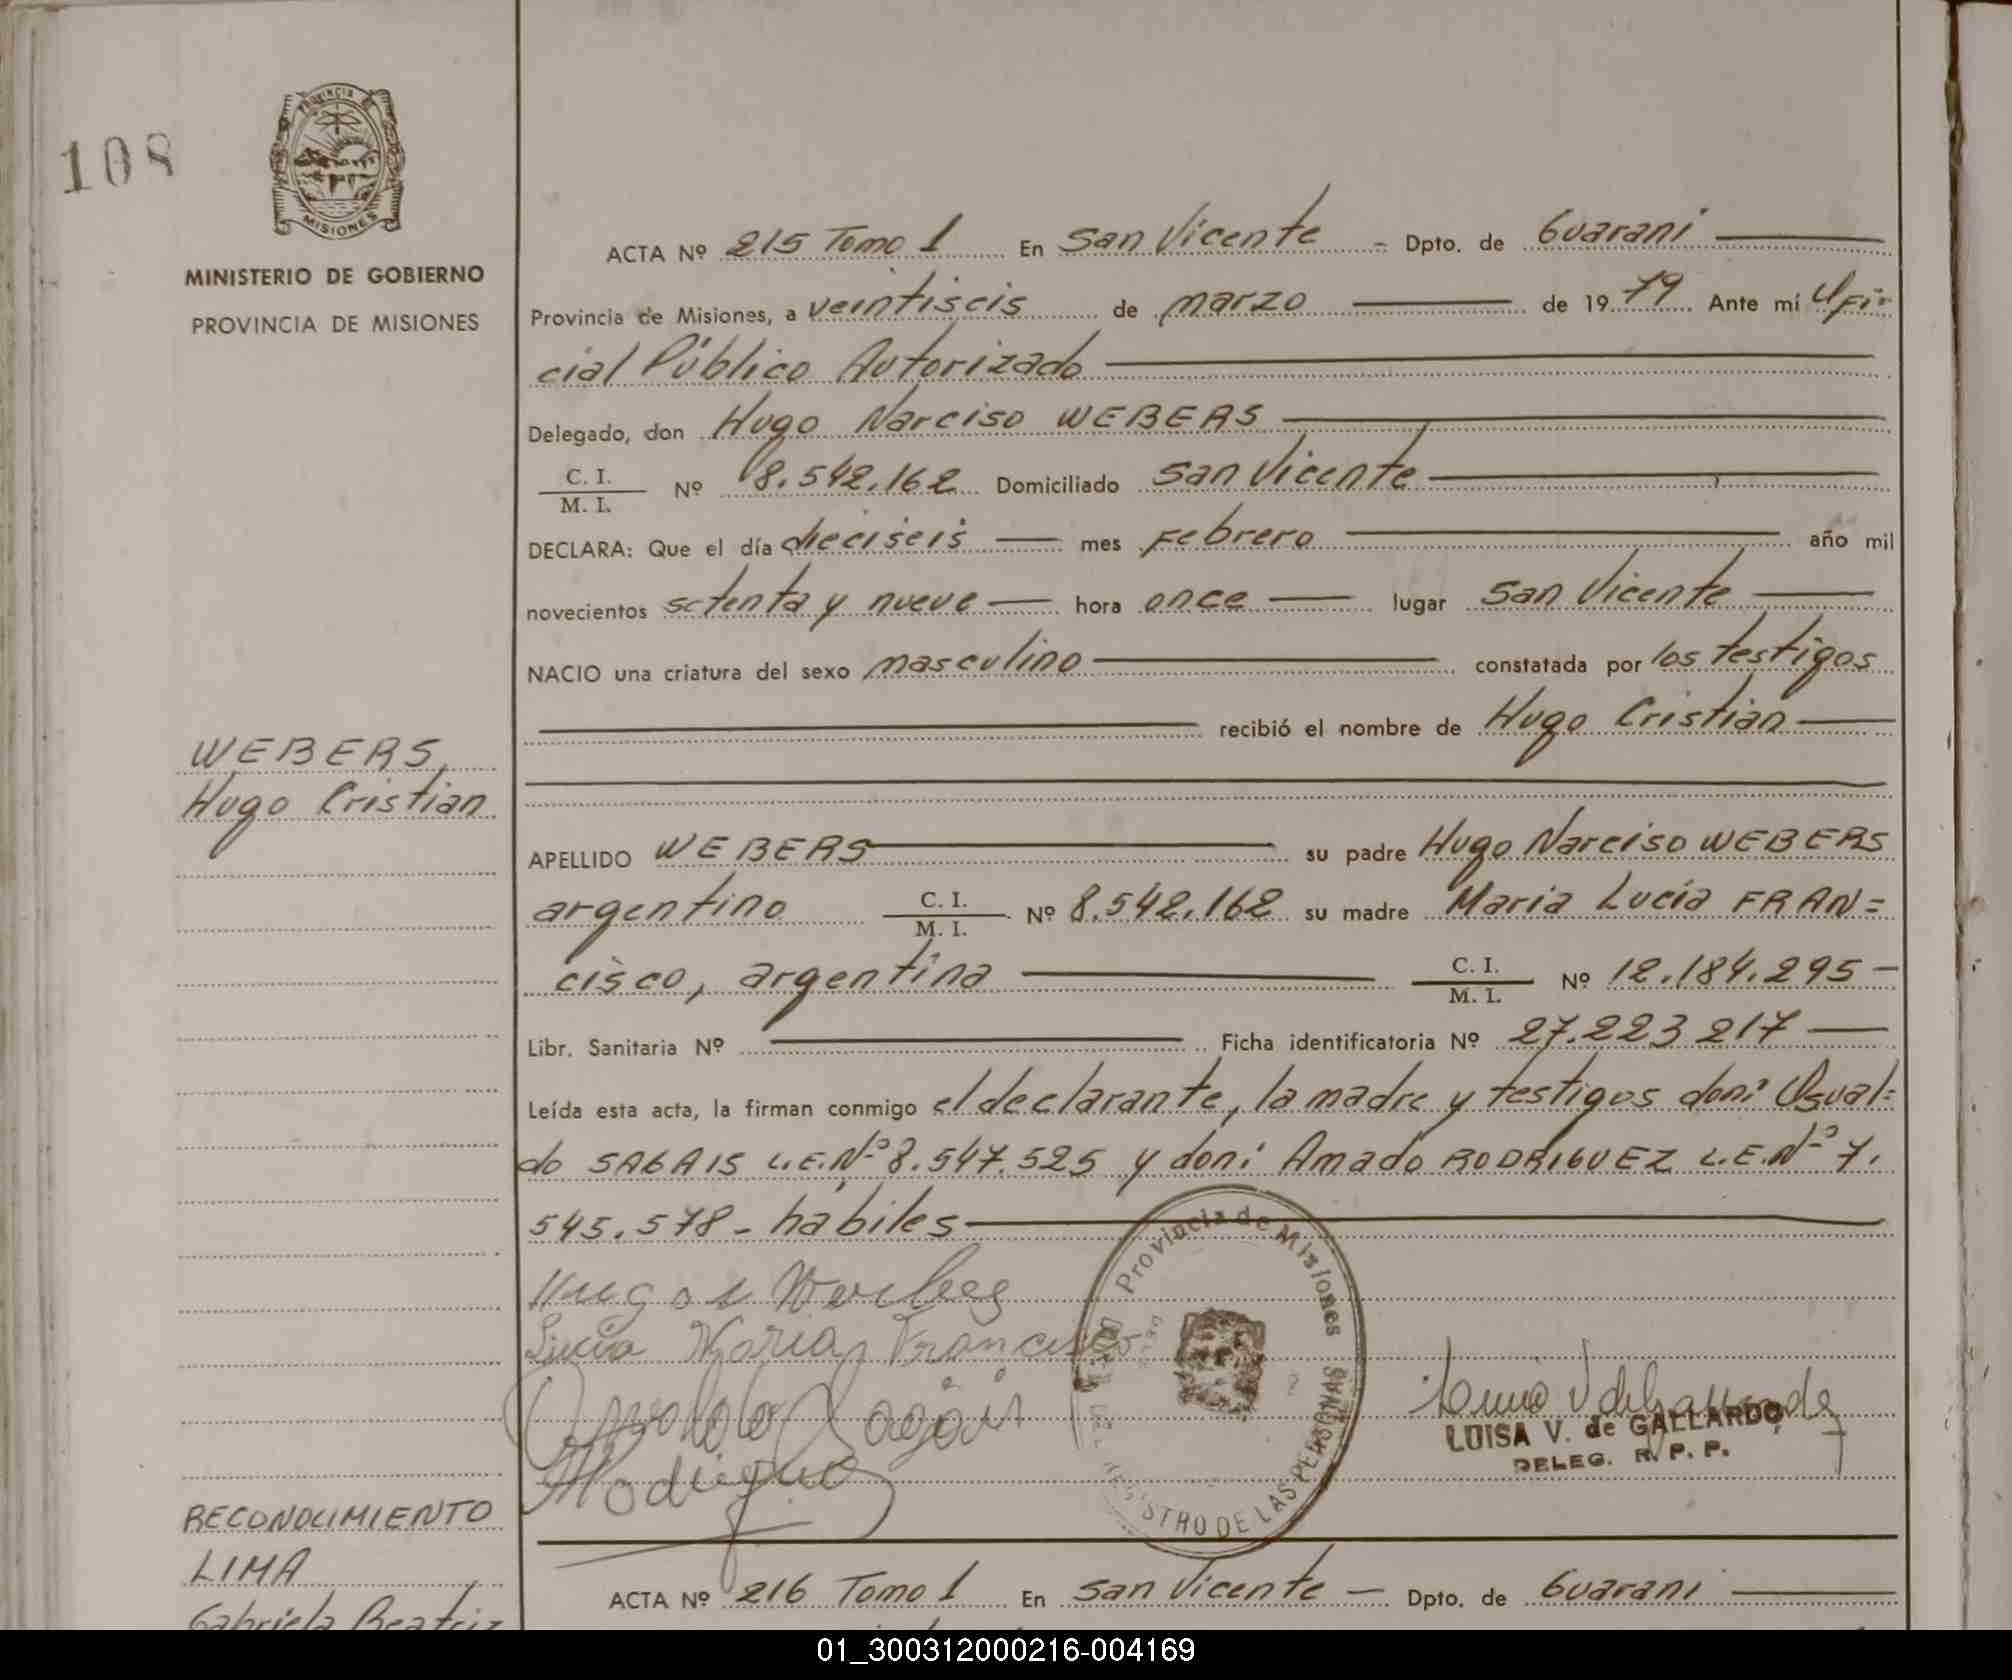 108
PROVINCIA DE
MISIONES
MINISTERIO DE GOBIERNO
PROVINCIA DE MISIONES
ACTA Nº 215 Tomo 1 En San Vicente - Dpto. de Guarani
Provincia de Misiones, a veintiseis de marzo de 1979 Ante mí Ofi-
cial Público Autorizado
Delegado, don Hugo Narciso WEBERS
C. I.
M. I. Nº 8.542.162 Domiciliado San Vicente
DECLARA: Que el día dieciseis mes Febrero año mil
novecientos setenta y nueve hora once lugar San Vicente
NACIO una criatura del sexo masculino constatada por los testigos
recibió el nombre de Hugo Cristian
WEBERS,
Hugo Cristian
APELLIDO WEBERS su padre Hugo Narciso WEBERS
argentino C. I.
M. I. Nº 8.542.162 su madre Maria Lucía FRAN=
cisco, argentina C. I.
M. I. Nº 12.184.295 -
Libr. Sanitaria Nº Ficha identificatoria Nº 27.223 217
Leída esta acta, la firman conmigo el declarante, la madre y testigos don: Osval=
do SAGAIS L.E.Nº 8.547.525 y don: Amado RODRIGUEZ L.E.Nº 7.
545.578 - hábiles
Lucia Maria Francisco
Provincia de Misiones
REGISTRO DE LAS PERSONAS
LUISA V. de GALLARDO
DELEG. R. P. P.
RECONOCIMIENTO
LIMA
Gabriela Beatriz
ACTA Nº 216 Tomo 1 En San Vicente - Dpto. de Guarani
01_300312000216-004169